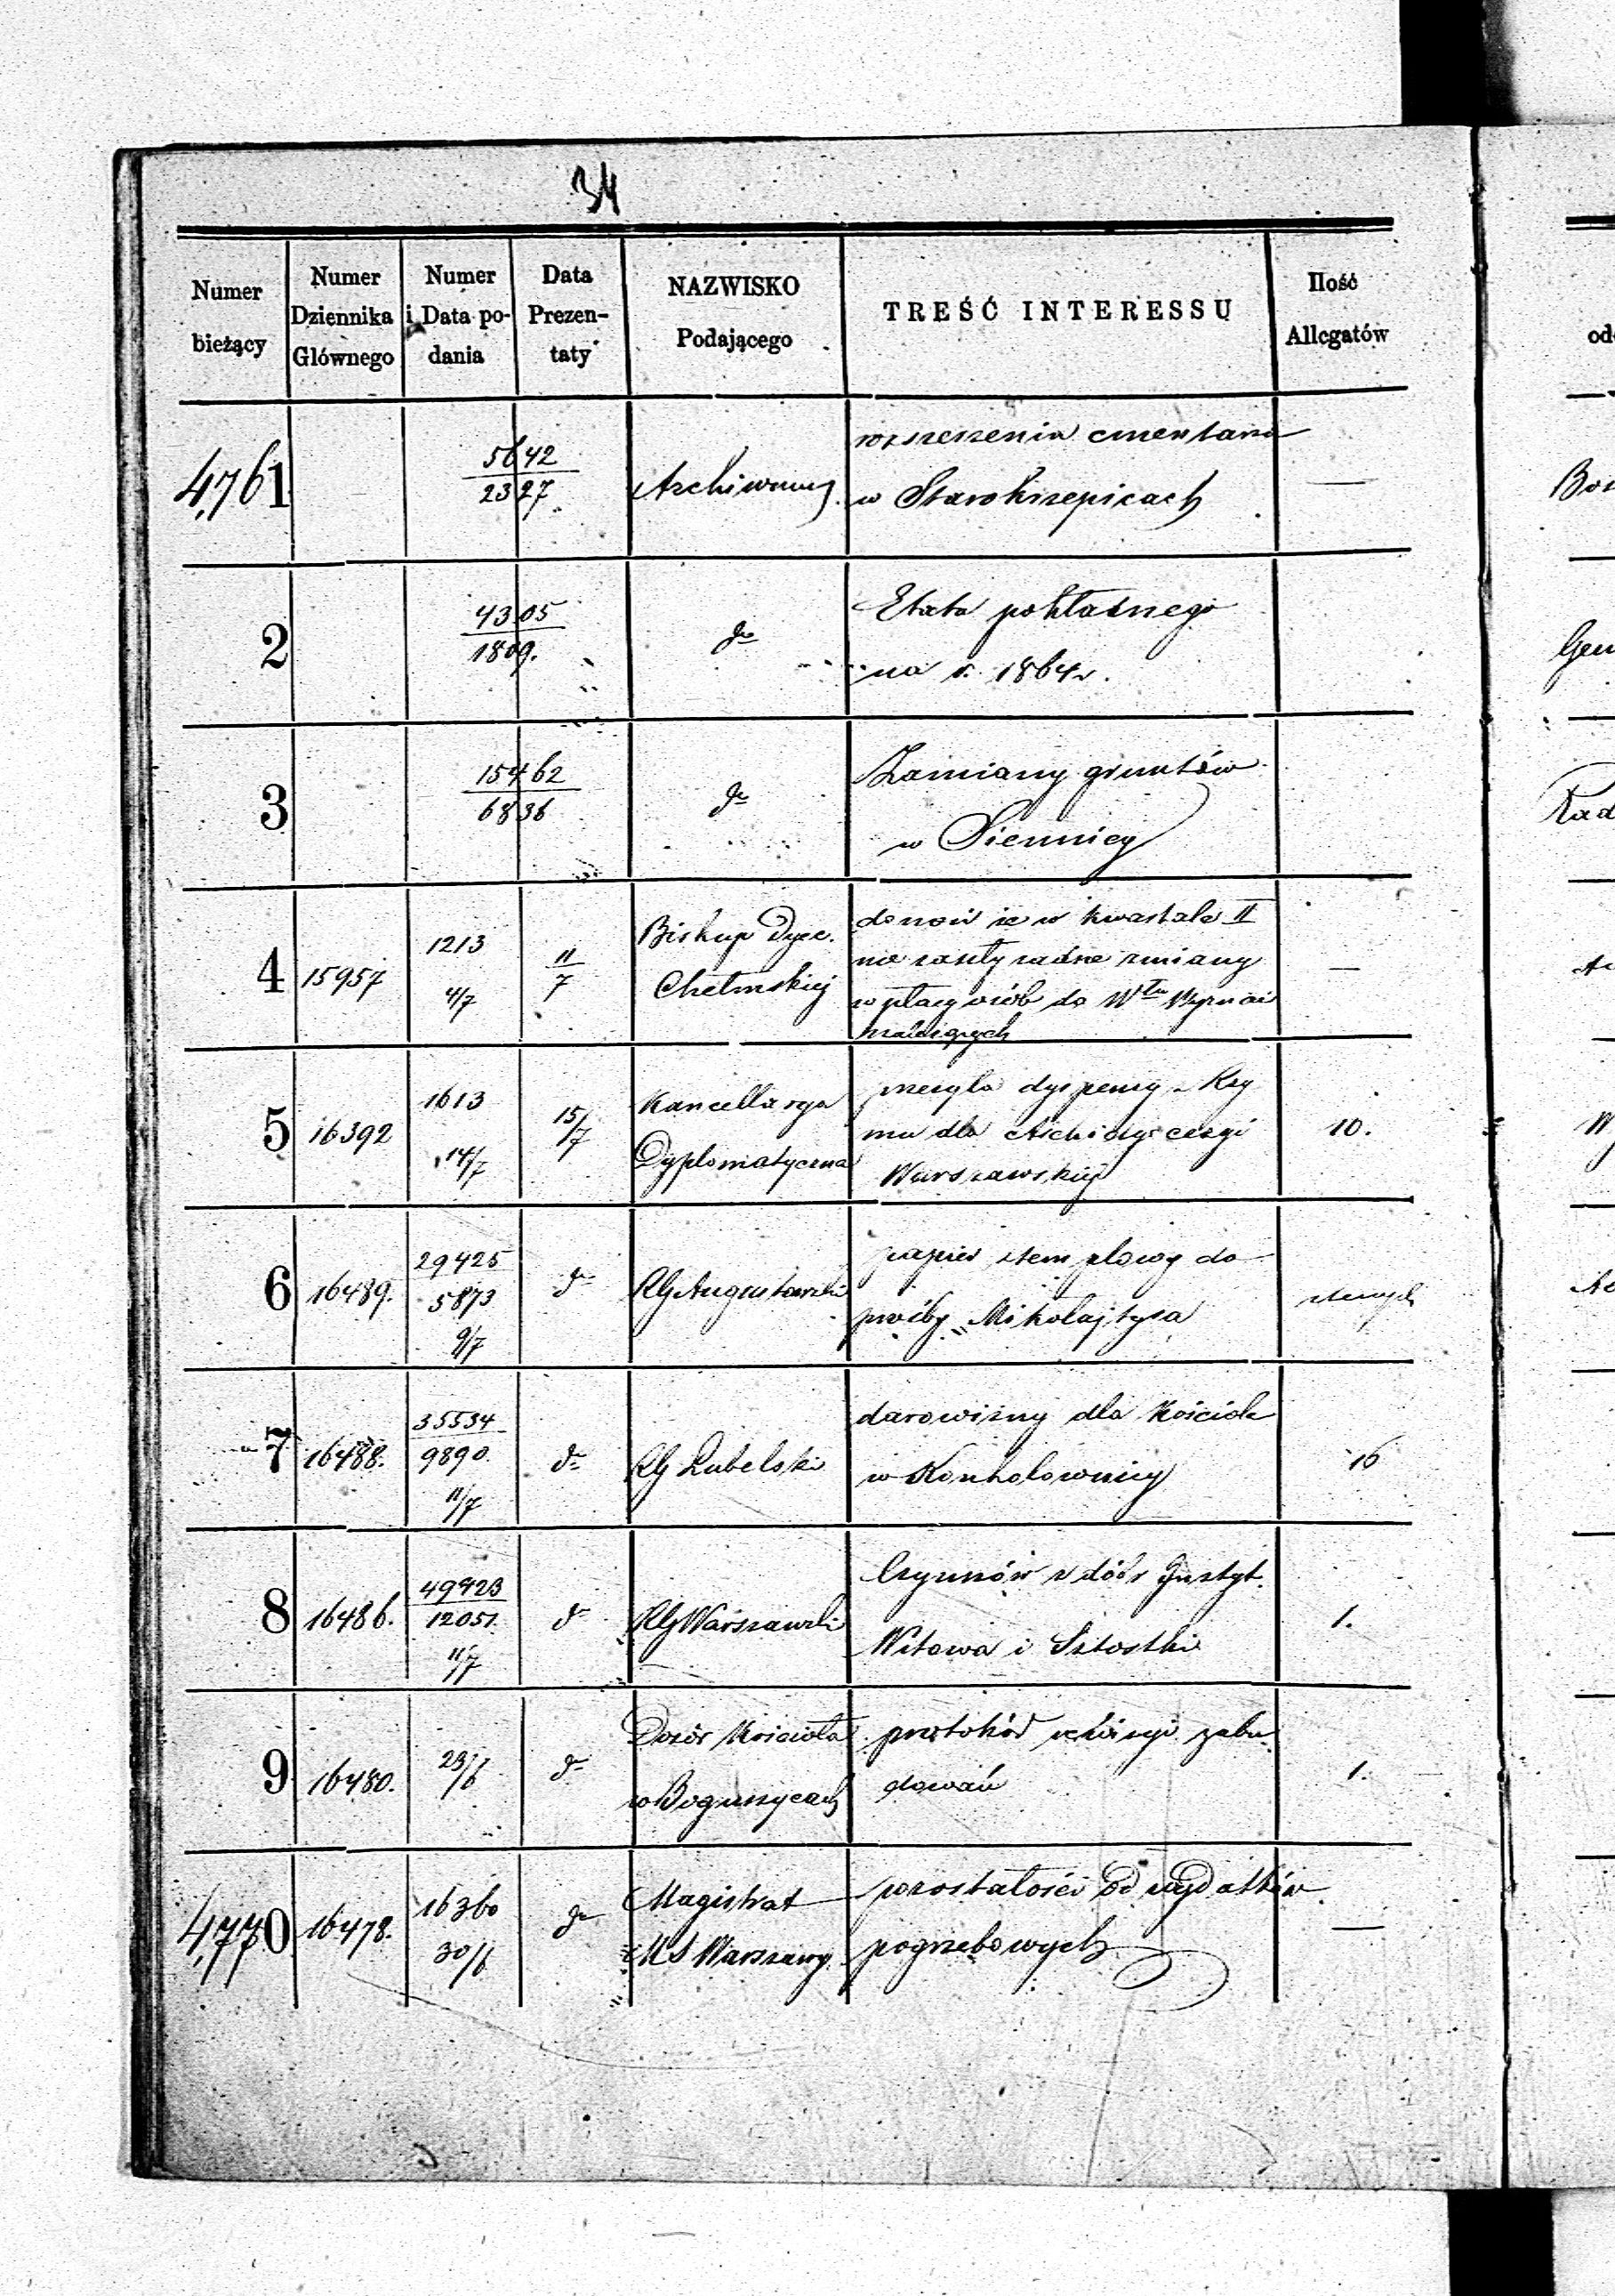 34
Numer bieżący
Numer Dziennika Głównego
Numer i Data podania
Data Prezentaty
NAZWISKO Podającego
TREŚĆ INTERESSU
Ilość Allegatów
4,761
5642
2327
Archiwum
rozszerzenia cmentarza
w Starokrzepicach
—
2
4305
1809.
do
Etatu pokładnego
na r. 1864
3
15462
6836
do
Zamiany gruntów
w Siennicy
4
15957
1213
4/7
11/7
Biskup Dyec.
Chełmskiej
donosi że w kwartale II
nie zaszły żadne zmiany
w płacy osób do Włu Wyznań
należących
—
5
16392
1613
14/7
15/7
Kancellarya
Dyplomatyczna
przesyła dyspensy z Rzy
mu dla Archidyecezyi
Warszawskiej
10.
6
16489.
29425
5873
9/7
do
RG Augustowski
papier stemplowy do
prośby Mikołajtysa
stempel
7
16488.
35534
9890.
11/7
do
RG Lubelski
darowizny dla Kościoła
w
16
8
16486.
49423
12051.
11/7
do
RG Warszawski
Czynszów z dóbr Instyt.
Witowa i
1.
9
16480.
23/6
do
Dozór Kościoła
w Boguszycach
protokół rewizyi zabu
dowań
1.
4,770
16478.
16360
30/6
do
Magistrat
M S Warszawy
pozostałości od wydatków
pogrzebowych
—